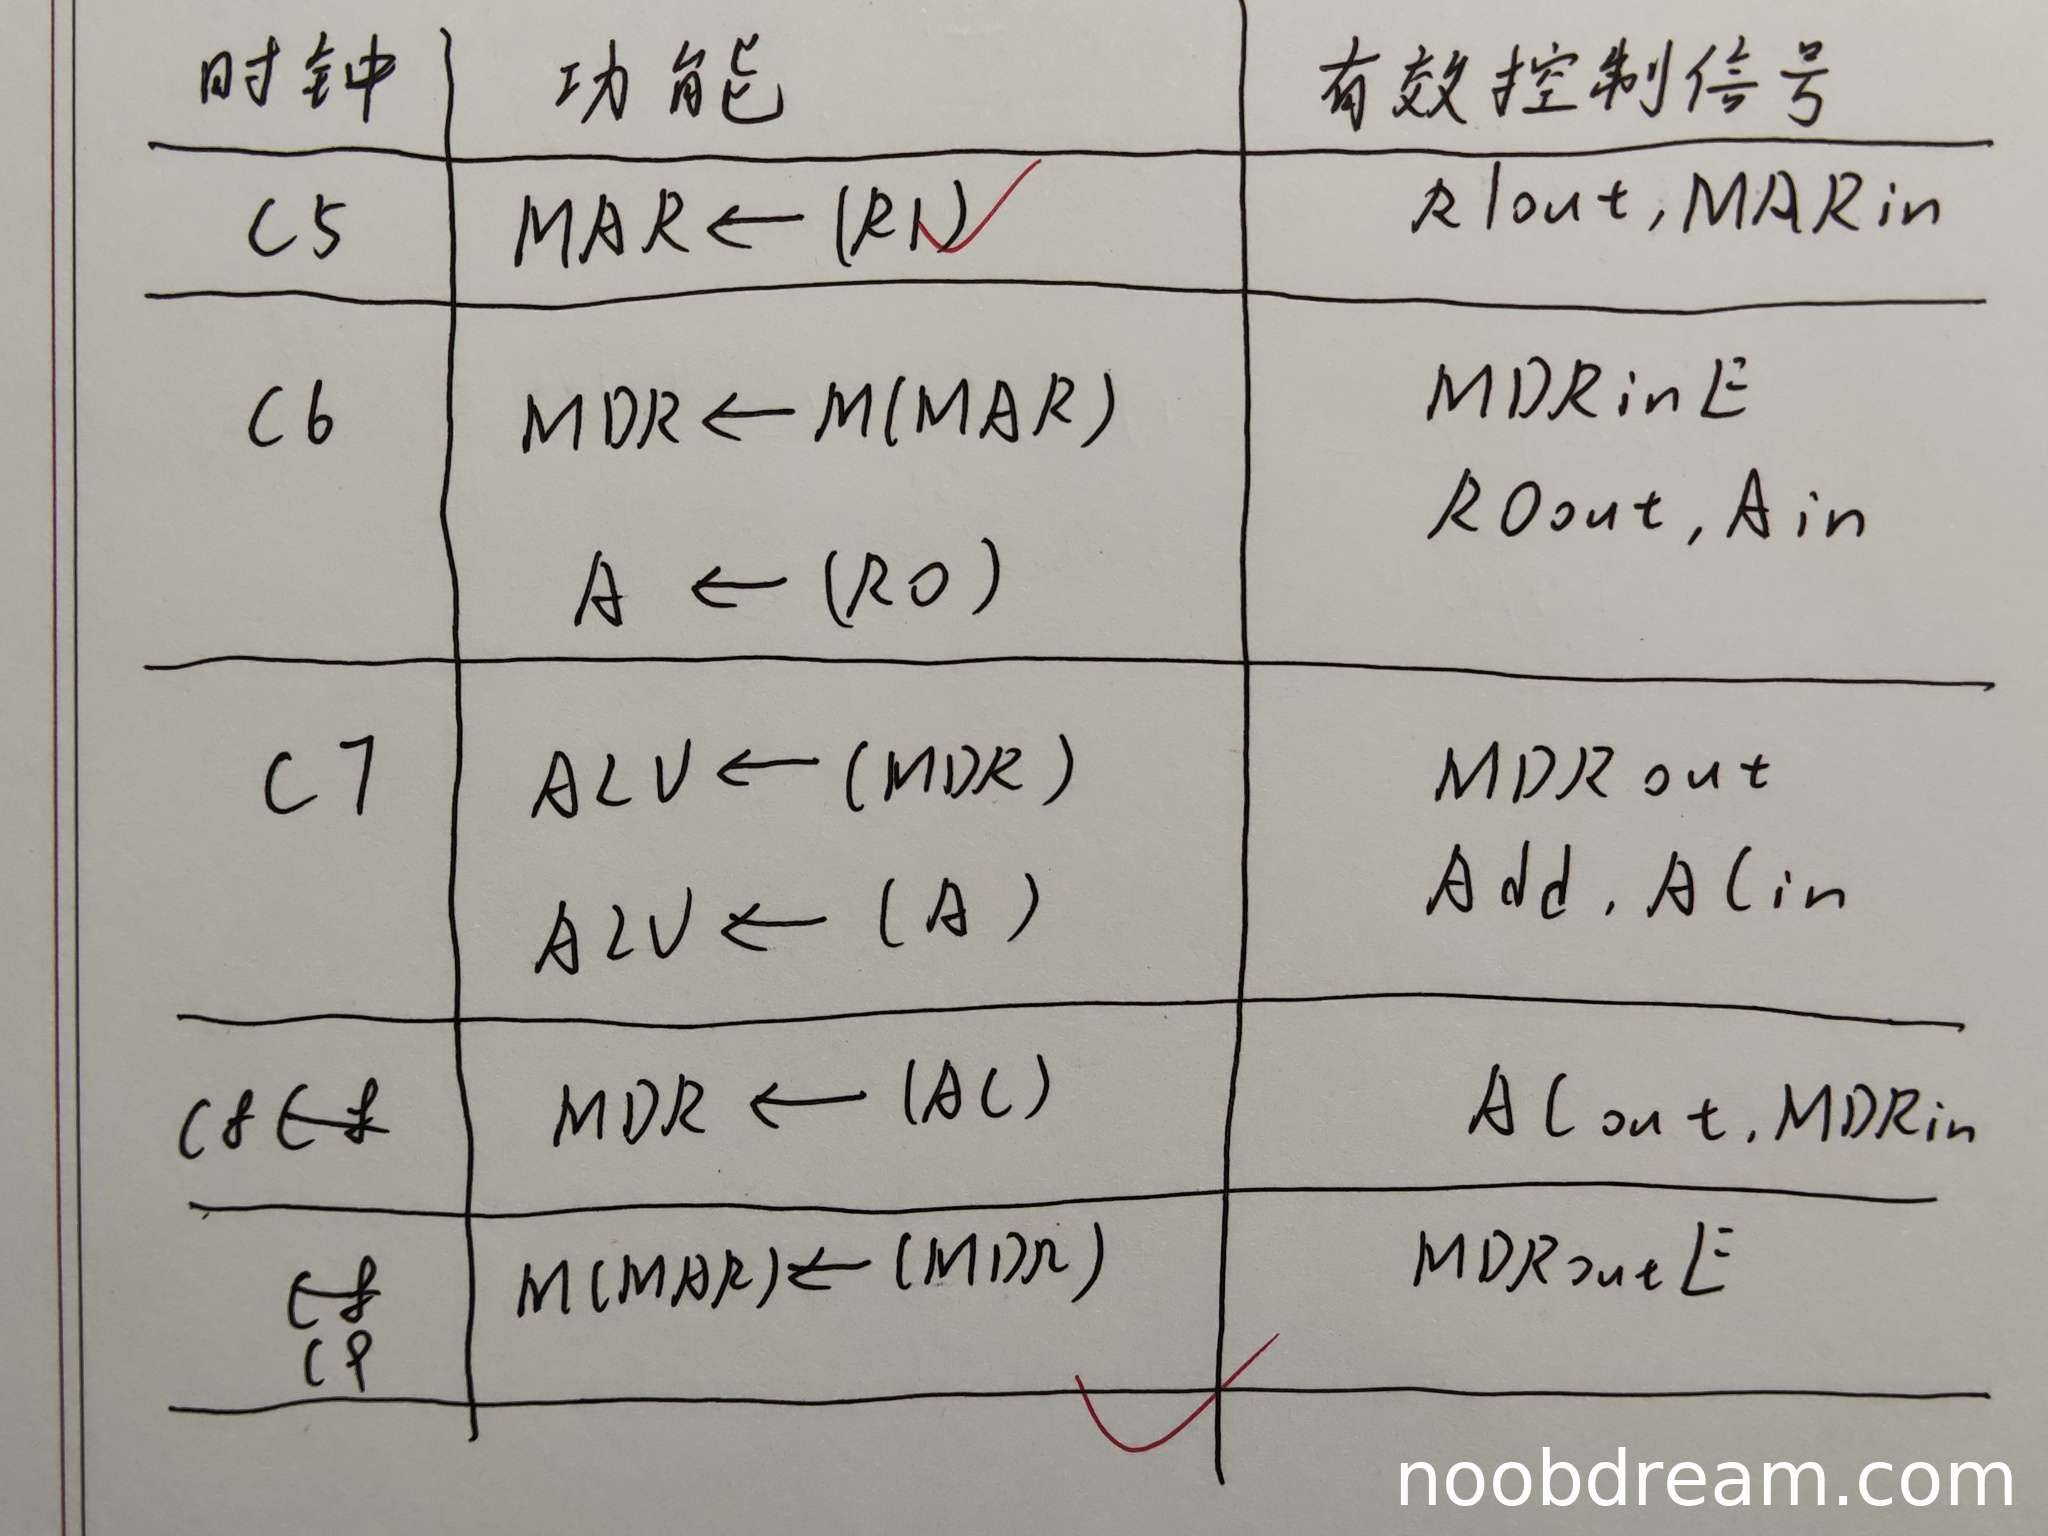 时钟 功能 有效控制信号
C5 MAR ← (R1) R1out, MARin
C6 MDR ← M(MAR) MDRinE
R0out, Ain
A ← (R0)
C7 ALU ← (MDR) MDRout
ALU ← (A) Add, ACin
C8 MDR ← (AC) ACout, MDRin
M(MAR) ← (MDR) MDRoutE
C9
noobdream.com